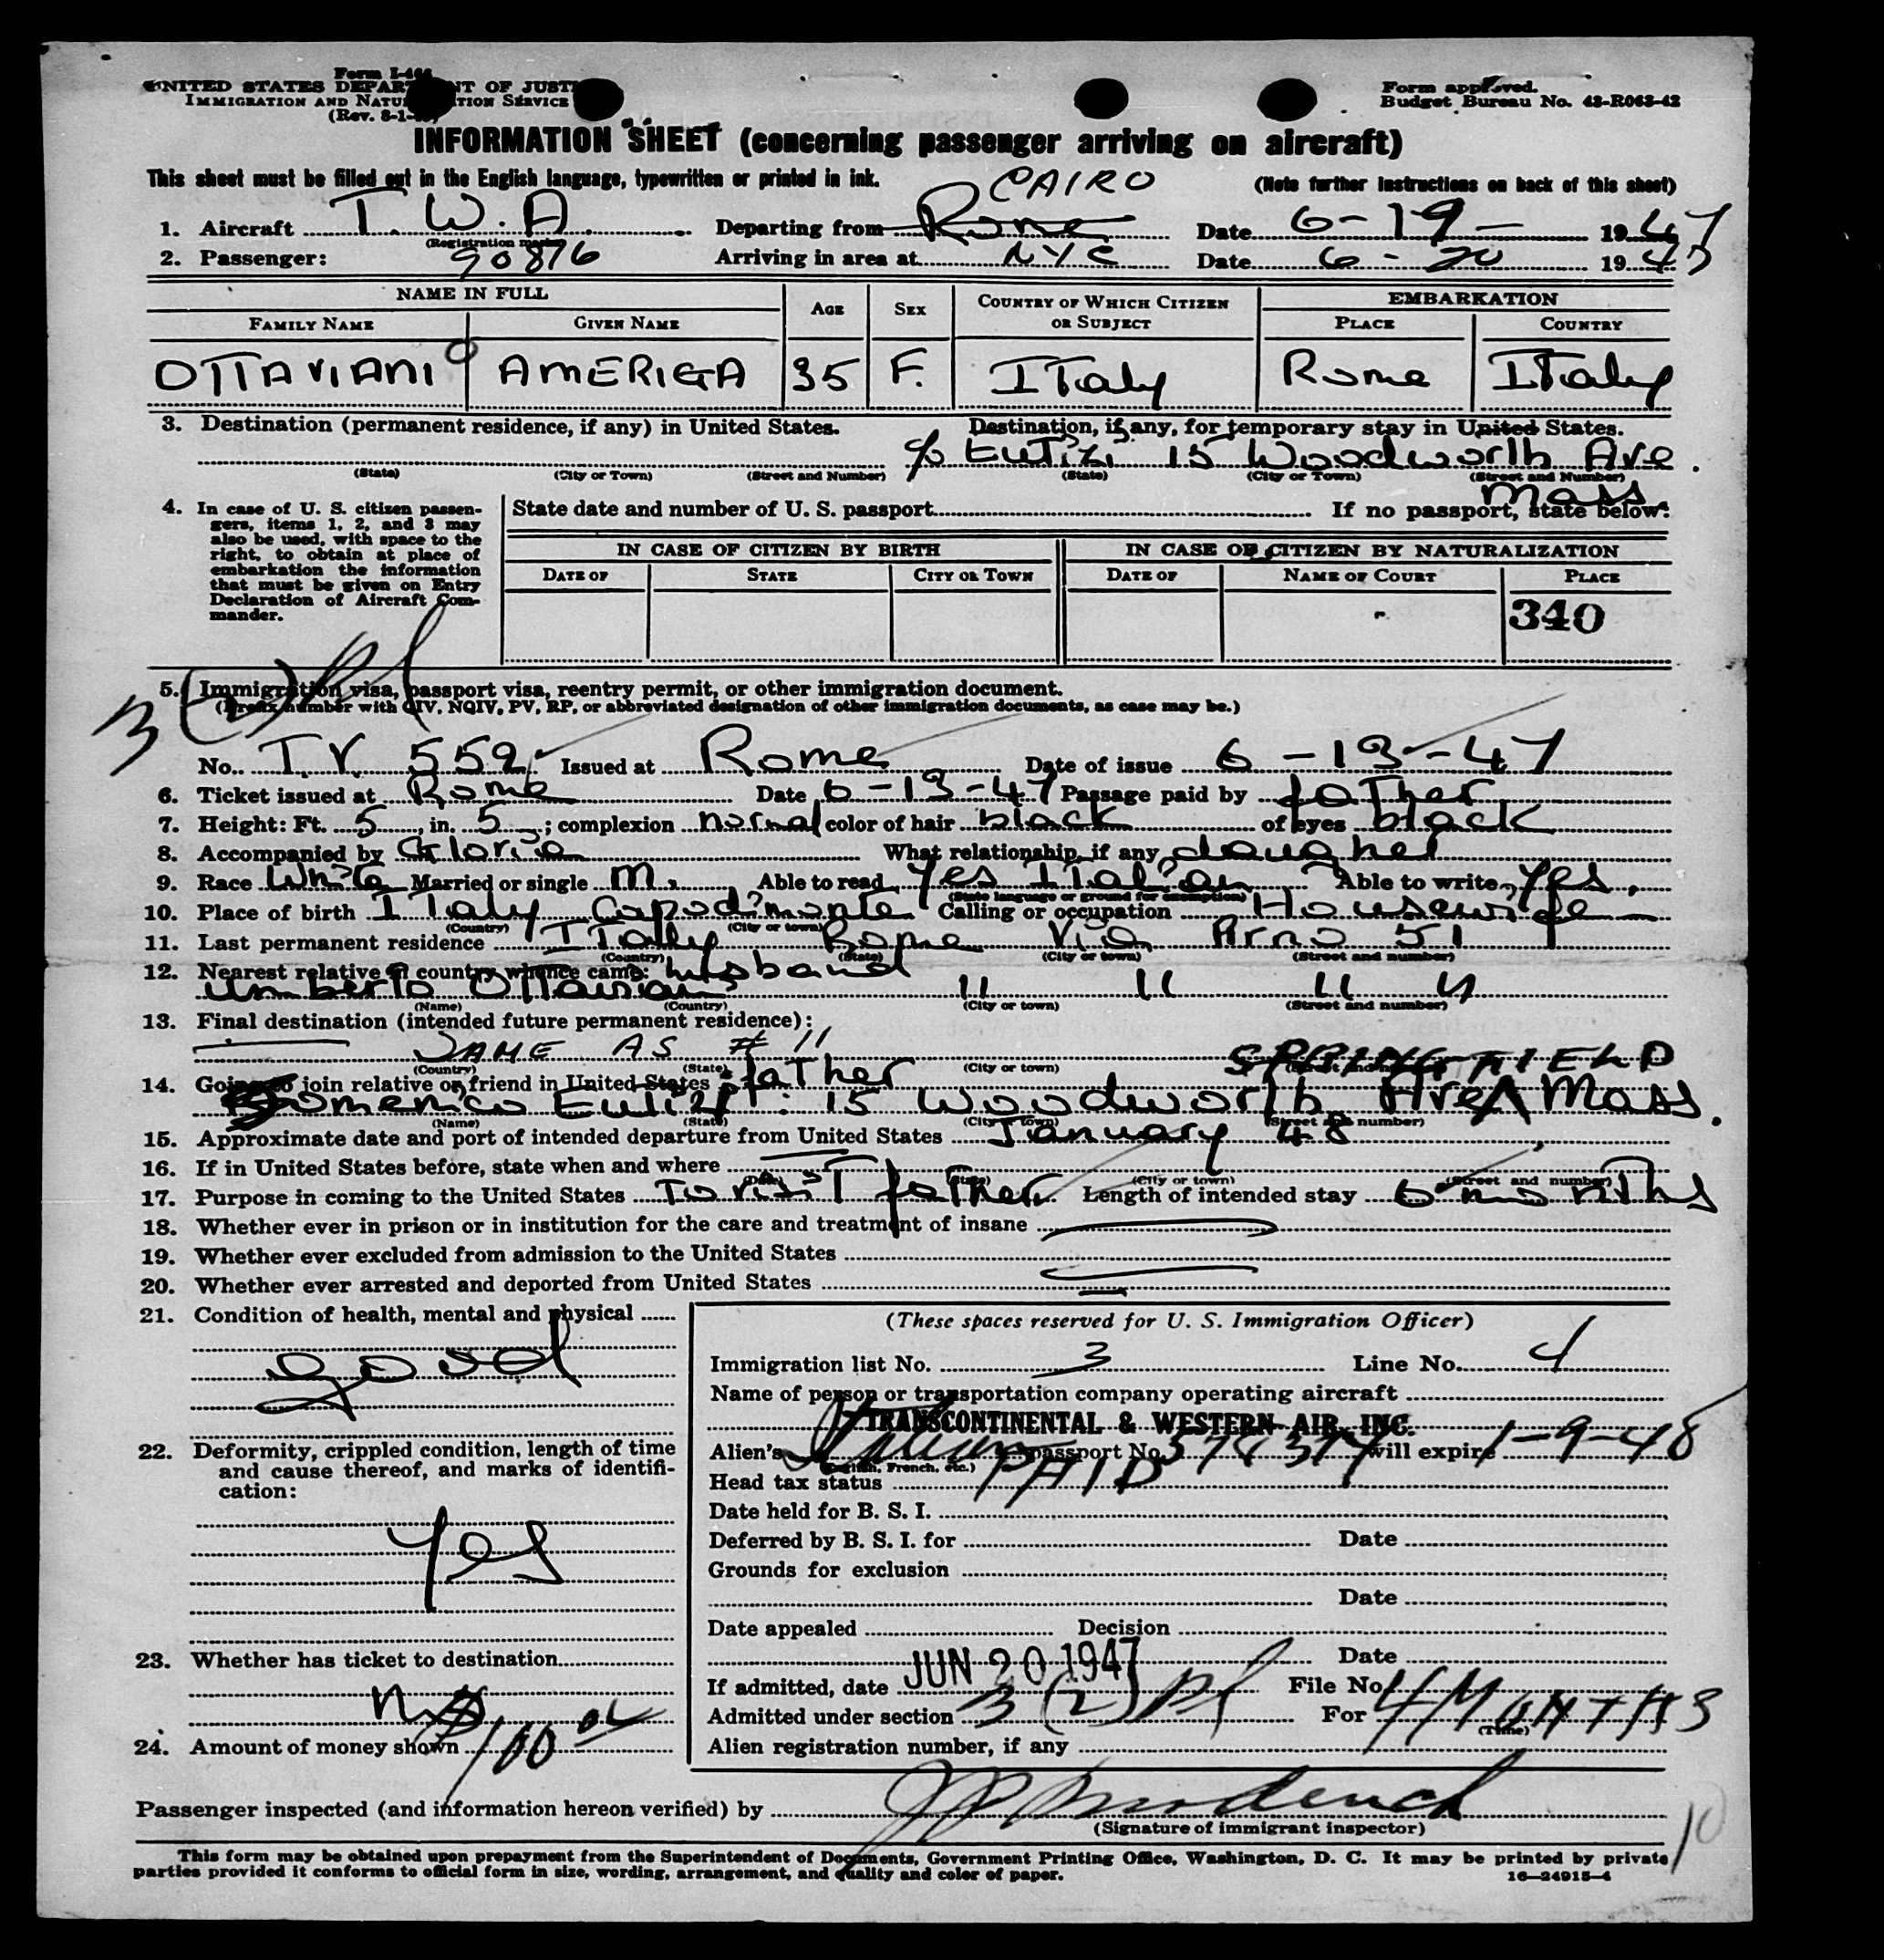 Form I-466
UNITED STATES DEPARTMENT OF JUSTICE
IMMIGRATION AND NATURALIZATION SERVICE
(Rev. 8-1-
Form approved.
Budget Bureau No. 43-R063-42
INFORMATION SHEET (concerning passenger arriving on aircraft)
This sheet must be filled out in the English language, typewritten or printed in ink.
(Note further instructions on back of this sheet)
CAIRO
1. Aircraft T. W. A. Departing from Rome Date 6-19- 1947
(Registration marks)
2. Passenger: 90816 Arriving in area at NYC Date 6-20 1947
NAME IN FULL AGE SEX COUNTRY OF WHICH CITIZEN OR SUBJECT EMBARKATION
FAMILY NAME GIVEN NAME PLACE COUNTRY
OTTAVIANI AMERIGA 35 F. ITaly Rome ITaly
3. Destination (permanent residence, if any) in United States. Destination, if any, for temporary stay in United States.
c/o Eutizi 15 Woodworth Ave.
(State) (City or Town) (Street and Number) (State) (City or Town) (Street and Number)
Mass.
4. In case of U. S. citizen passengers, items 1, 2, and 3 may also be used, with space to the right, to obtain at place of embarkation the information that must be given on Entry Declaration of Aircraft Commander.
State date and number of U. S. passport If no passport, state below:
IN CASE OF CITIZEN BY BIRTH IN CASE OF CITIZEN BY NATURALIZATION
DATE OF STATE CITY OR TOWN DATE OF NAME OF COURT PLACE
340
3(2)
5. Immigration visa, passport visa, reentry permit, or other immigration document.
(Prefix number with QIV, NQIV, PV, RP, or abbreviated designation of other immigration documents, as case may be.)
No. T.V. 559 Issued at Rome Date of issue 6-13-47
6. Ticket issued at Rome Date 6-13-47 Passage paid by faTher
7. Height: Ft. 5, in. 5; complexion normal color of hair black of eyes black
8. Accompanied by Gloria What relationship, if any daugher
9. Race White Married or single M. Able to read Yes ITalian Able to write Yes.
(State language or ground for exemption)
10. Place of birth ITaly Capodimonte Calling or occupation Housewife
(Country) (City or town)
11. Last permanent residence ITaly Rome Via Arno 51
(Country) (State) (City or town) (Street and number)
12. Nearest relative in country whence came: husband
Umberto OTTaviani " " " "
(Name) (Country) (City or town) (Street and number)
13. Final destination (intended future permanent residence):
SAME AS # 11
(Country) (State) (City or town) (Street and number)
SPRINGFIELD
14. Going to join relative or friend in United States: faTher
Domenico Eutizi: 15 Woodworth Ave Mass.
(Name) (State) (City or town) (Street and number)
15. Approximate date and port of intended departure from United States January 48
16. If in United States before, state when and where
(Date) (State) (City or town) (Street and number)
17. Purpose in coming to the United States To visiT faTher Length of intended stay 6 monThs
18. Whether ever in prison or in institution for the care and treatment of insane
19. Whether ever excluded from admission to the United States
20. Whether ever arrested and deported from United States
21. Condition of health, mental and physical
good
22. Deformity, crippled condition, length of time and cause thereof, and marks of identification:
Yes
23. Whether has ticket to destination
no
24. Amount of money shown $100.00
(These spaces reserved for U. S. Immigration Officer)
Immigration list No. 3 Line No. 4
Name of person or transportation company operating aircraft
TRANSCONTINENTAL & WESTERN AIR, INC.
Alien's Italian passport No. 574374 will expire 1-9-48
(English, French, etc.)
Head tax status PAID
Date held for B. S. I.
Deferred by B. S. I. for Date
Grounds for exclusion
Date
Date appealed Decision
Date
If admitted, date JUN 20 1947 File No.
Admitted under section 3(2) For 4 MONTHS
(Time)
Alien registration number, if any
Passenger inspected (and information hereon verified) by
(Signature of immigrant inspector)
10
This form may be obtained upon prepayment from the Superintendent of Documents, Government Printing Office, Washington, D. C. It may be printed by private
parties provided it conforms to official form in size, wording, arrangement, and quality and color of paper.
16—24915-4